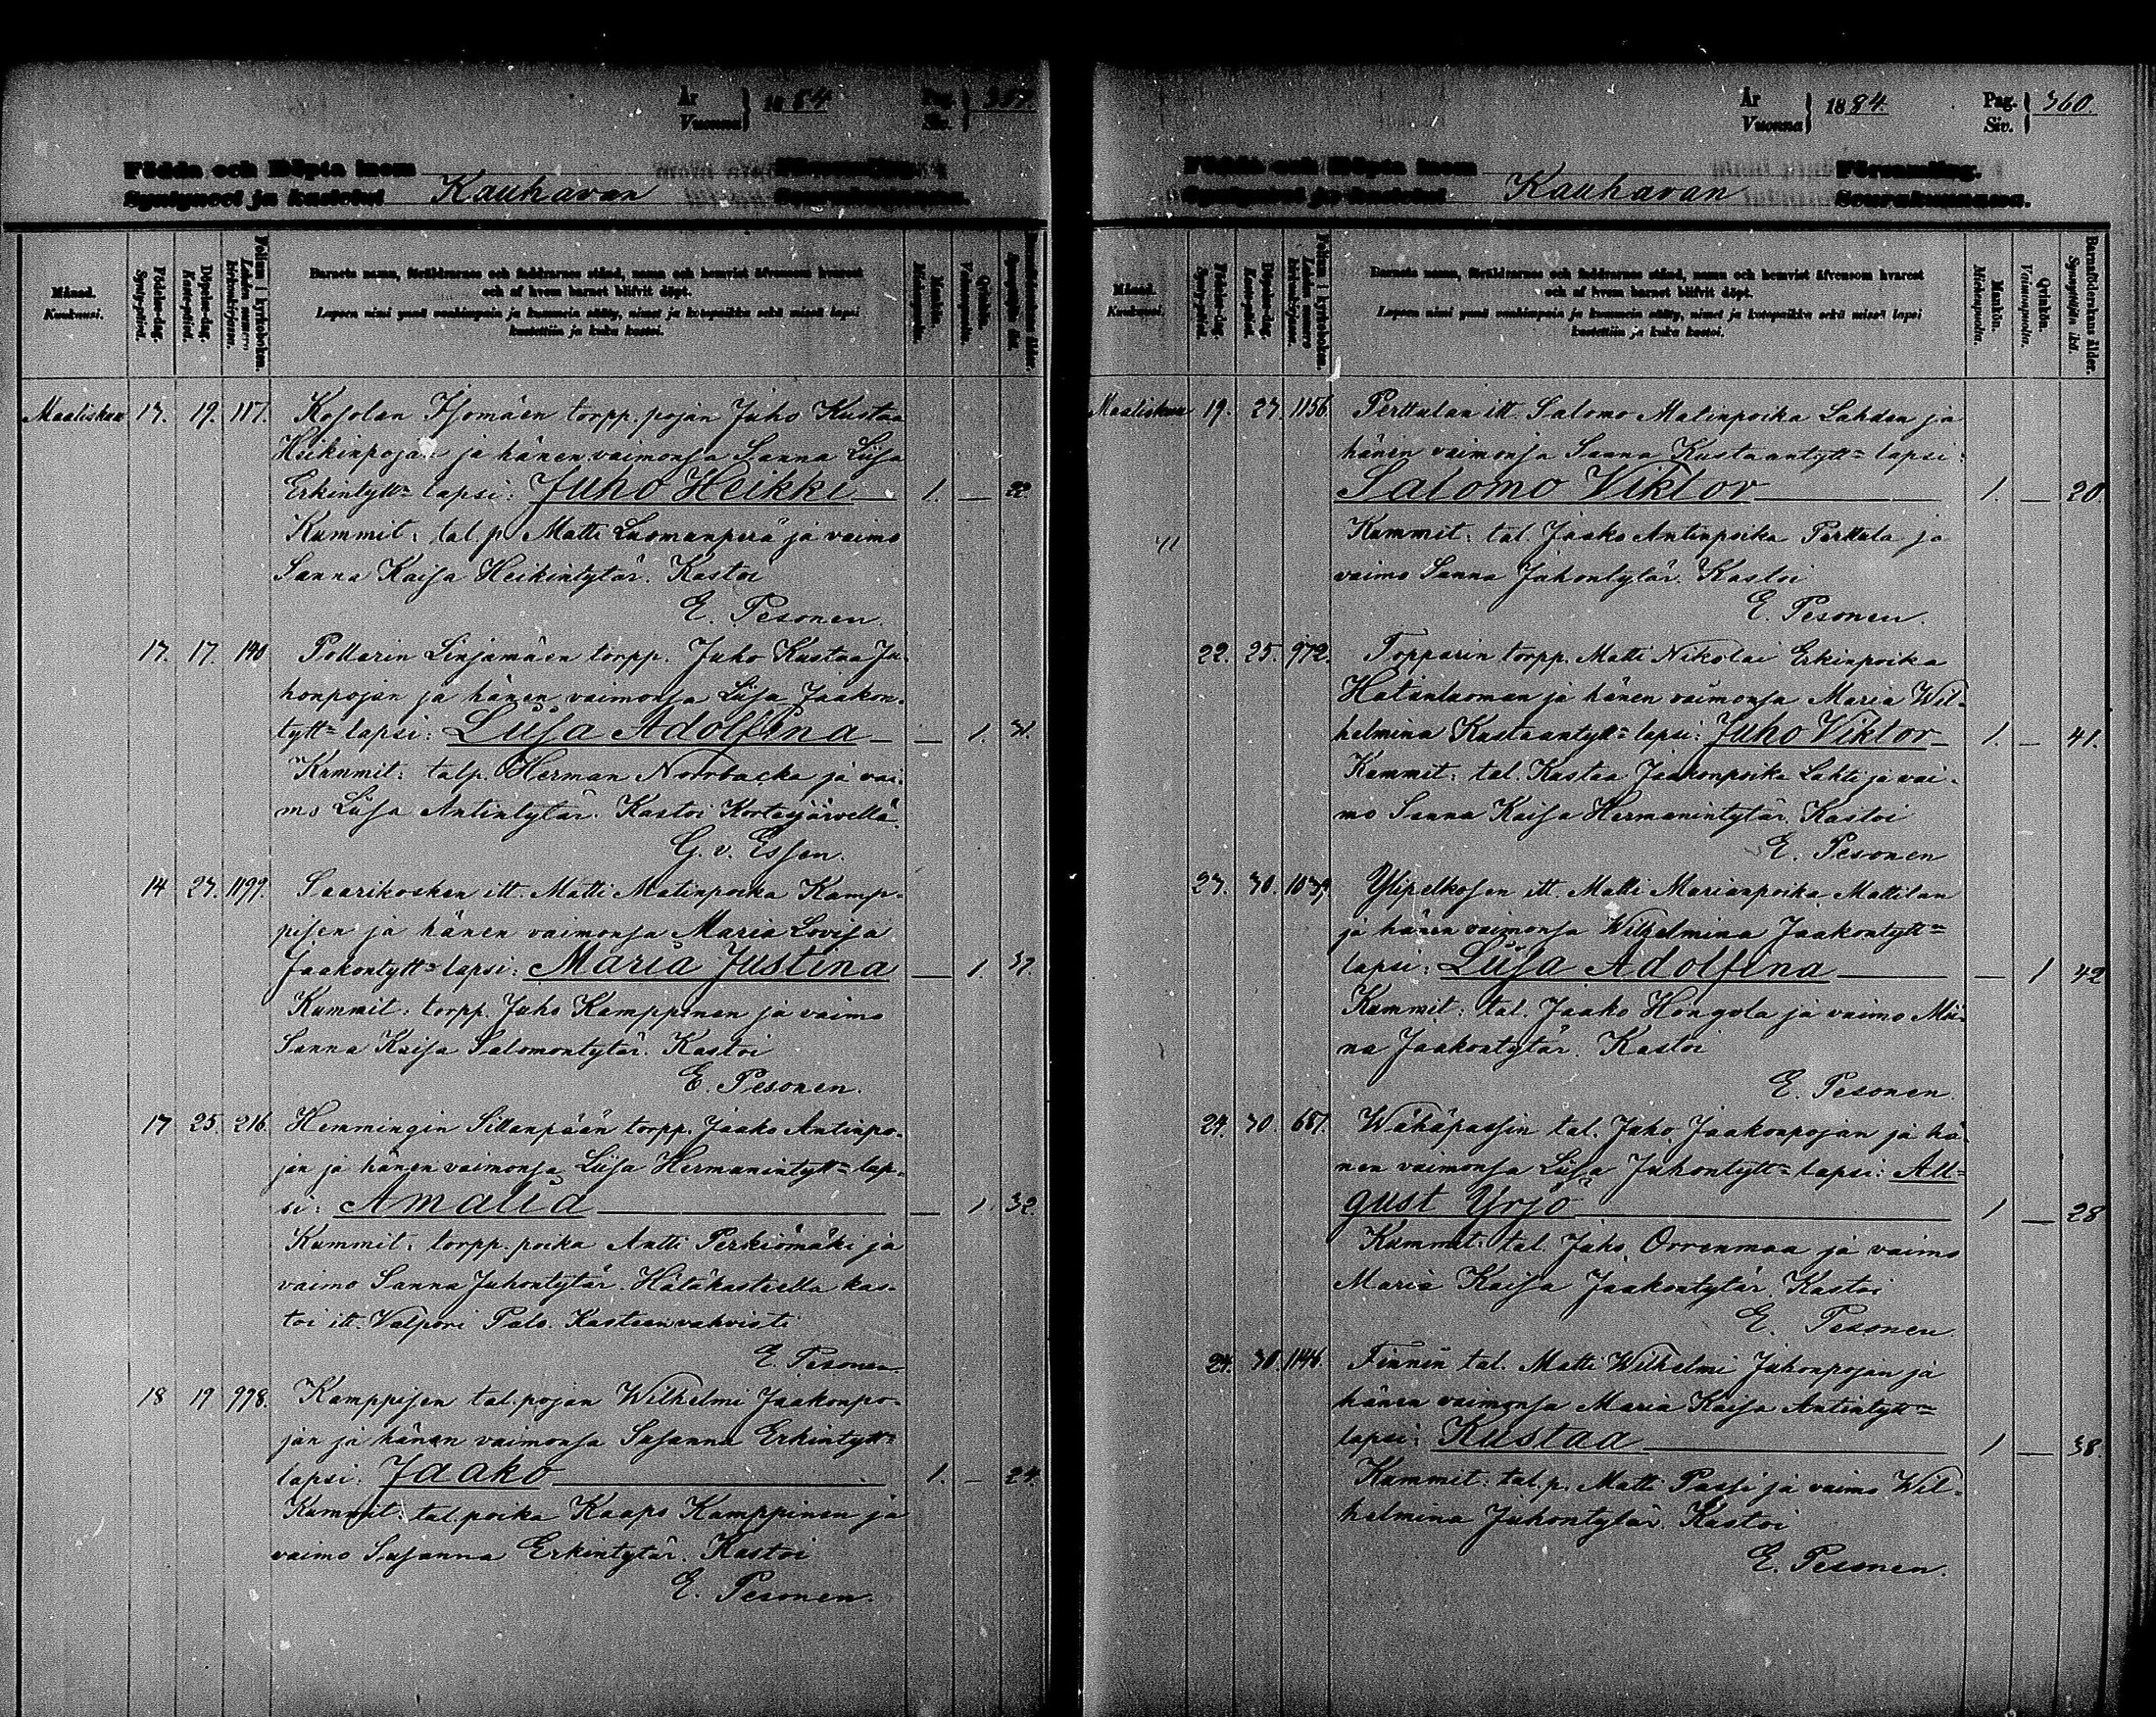 År Vuonna 1884. Pag. Siv.
Födda och Döpta inom Församling.
Syntyneet ja kastetut Kauhavan Seurakunnassa.
Månad. Kuukausi.
Födelse-dag. Synty-päivä.
Döpelse-dag. Kaste-päivä.
Folium i kyrkoboken. Lehden numero kirkonkirjassa.
Barnets namn, föräldrarnes och faddrarnes stånd, namn och hemvist äfvensom hvarest
och af hvem barnet blifvit döpt.
Lapsen nimi ynnä vanhimpain ja kummein sääty, nimet ja kotopaikka sekä missä lapsi
kastettiin ja kuka kastoi.
Mankön. Miehenpuolia.
Qvinkön. Vaimonpuolia.
Barnaföderskans ålder. Synnyttäjän ikä.
Maaliskuu 17. 19. 1187. Kosolan Isomäen torpp. pojan Juho Kustaa
Heikinpojan ja hänen vaimonsa Sanna Liisa
Erkintytt= lapsi: Juho Heikki 1. — 22
Kummit: tal. p. Matti Luomanperä ja vaimo
Sanna Kaisa Heikintytär. Kastoi
E. Pesonen.
17. 17. Pollarin Linjamäen torpp. Juho Kustaa Ju-
honpojan ja hänen vaimonsa Liisa Jaakon-
tytt= lapsi: Liisa Adolfina — 1. 31.
Kummit: talp. Herman Norrbacka ja vai-
mo Liisa Antintytär. Kastoi Kortesjärvellä
G. v. Essen.
14 23. 1199. Saarikosken itt. Matti Matinpoika Kamp-
pisen ja hänen vaimonsa Maria Lovisa
Jaakontytt= lapsi: Maria Justina — 1. 37.
Kummit: torpp. Juho Kamppinen ja vaimo
Sanna Kaisa Salomontytär. Kastoi
E. Pesonen.
17 25. 216. Hemmingin Sillanpään torpp. Jaako Antinpo-
jan ja hänen vaimonsa Liisa Hermanintytt= lap-
si: Amalia — 1. 32.
Kummit: torpp. poika Antti Perkiömäki ja
vaimo Sanna Juhontytär. Hätäkasteella kas-
toi itt. Valpori Palo. Kasteen vahvisti
E. Pesonen
18 19 998. Kamppisen tal. pojan Wilhelmi Jaakonpo-
jan ja hänen vaimonsa Susanna Erkintytt=
lapsi: Jaako 1. — 24.
Kummit: tal. poika Kaapo Kamppinen ja
vaimo Susanna Erkintytär. Kastoi
E. Pesonen.
År Vuonna 1884. Pag. Siv. 360.
Födda och Döpta inom Församling.
Syntyneet ja kastetut Kauhavan Seurakunnassa.
Månad. Kuukausi.
Födelse-dag. Synty-päivä.
Döpelse-dag. Kaste-päivä.
Folium i kyrkoboken. Lehden numero kirkonkirjassa.
Barnets namn, föräldrarnes och faddrarnes stånd, namn och hemvist äfvensom hvarest
och af hvem barnet blifvit döpt.
Lapsen nimi ynnä vanhimpain ja kummein sääty, nimet ja kotopaikka sekä missä lapsi
kastettiin ja kuka kastoi.
Mankön. Miehenpuolia.
Qvinkön. Vaimonpuolia.
Barnaföderskans ålder. Synnyttäjän ikä.
Maaliskuu 19. 23. 1156. Perttulan itt. Salomo Matinpoika Lahden ja
hänen vaimonsa Sanna Kustaantytt= lapsi:
Salomo Viktor 1. — 20.
Kummit: tal. Jaako Antinpoika Perttula ja
vaimo Sanna Juhontytär. Kastoi
E. Pesonen.
22. 25. 972. Topparin torpp. Matti Nikolai Erkinpoika
Hatanluoman ja hänen vaimonsa Maria Wil-
helmina Kustaantytt= lapsi: Juho Viktor 1. — 41.
Kummit: tal. Kustaa Jaakonpoika Lahti ja vai-
mo Sanna Kaisa Hermanintytär. Kastoi
E. Pesonen
23. 30. 1039. Ylipelkosen itt. Matti Marianpoika Mattilan
ja hänen vaimonsa Wilhelmina Jaakontytt=
lapsi: Liisa Adolfina — 1 42
Kummit: tal. Jaako Hongola ja vaimo Mii-
na Jaakontytär. Kastoi
E. Pesonen.
24. 30. 687. Wähäpassin tal. Juho Jaakonpojan ja hä-
nen vaimonsa Liisa Juhontytt= lapsi: Au-
gust Yrjö 1 — 28
Kummit: tal. Juho Orrenmaa ja vaimo
Maria Kaisa Jaakontytär. Kastoi
E. Pesonen
24. 30. 1146. Finnin tal. Matti Wilhelmi Juhonpojan ja
hänen vaimonsa Maria Kaisa Antintytt=
lapsi: Kustaa 1 — 38.
Kummit: tal. p. Matti Passi ja vaimo Wil-
helmina Juhontytär. Kastoi
E. Pesonen.